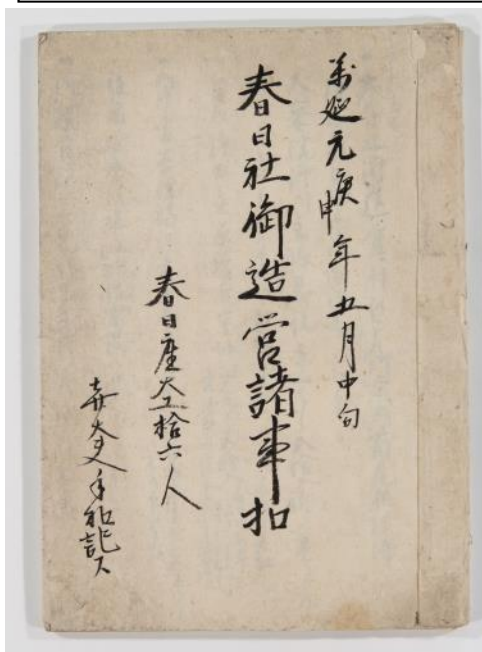 萬延元庚申年五月中旬
春日社御造営諸事扣
春日座大工拾六人
大夫手扣記